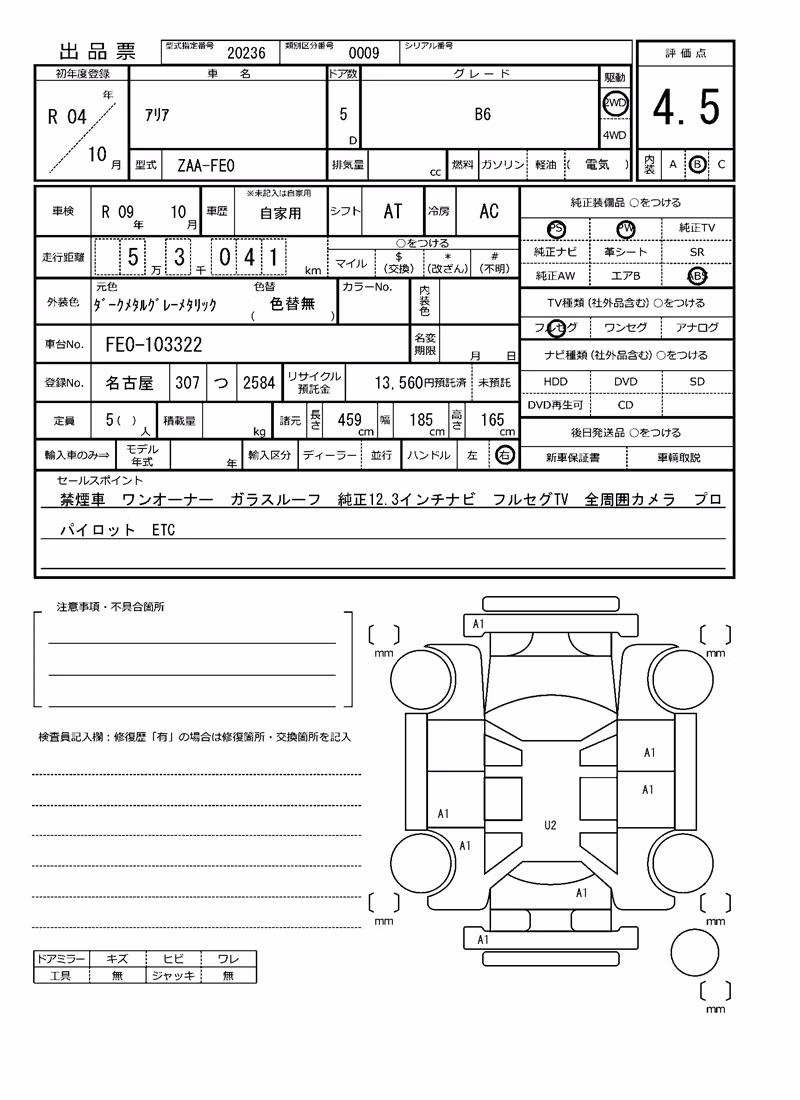 出品票 型式指定番号 20236 類別区分番号 0009 シリアル番号
評価点
初年度登録 車名 ドア数 グレード 駆動
R 04 年 10 月 アリア 5 D B6 2WD 4WD
4.5
型式 ZAA-FE0 排気量 cc 燃料 ガソリン 軽油 ( 電気 )
内装 A B C
車検 R 09 年 10 月 車歴 ※未記入は自家用 自家用 シフト AT 冷房 AC
走行距離 5 万 3 千 0 4 1 km
○をつける
マイル $ (交換) * (改ざん) # (不明)
外装色 元色 ﾀﾞｰｸﾒﾀﾙｸﾞﾚｰﾒﾀﾘｯｸ 色替 ( 色替無 ) カラーNo. 内装色
車台No. FE0-103322 名変期限 月 日
登録No. 名古屋 307 つ 2584 リサイクル預託金 13,560円預託済 未預託
定員 5( ) 人 積載量 kg 諸元 長さ 459 cm 幅 185 cm 高さ 165 cm
輸入車のみ⇒ モデル年式 年 輸入区分 ディーラー 並行 ハンドル 左 右
純正装備品 ○をつける
PS PW 純正TV
純正ナビ 革シート SR
純正AW エアB ABS
TV種類(社外品含む)○をつける
フルセグ ワンセグ アナログ
ナビ種類(社外品含む)○をつける
HDD DVD SD
DVD再生可 CD
後日発送品 ○をつける
新車保証書 車輌取説
セールスポイント
禁煙車 ワンオーナー ガラスルーフ 純正12.3インチナビ フルセグTV 全周囲カメラ プロ
パイロット ETC
注意事項・不具合箇所
検査員記入欄：修復歴「有」の場合は修復箇所・交換箇所を記入
ドアミラー キズ ヒビ ワレ
工具 無 ジャッキ 無
A1
mm mm
A1
A1
A1
U2
A1
A1
mm mm
A1
mm